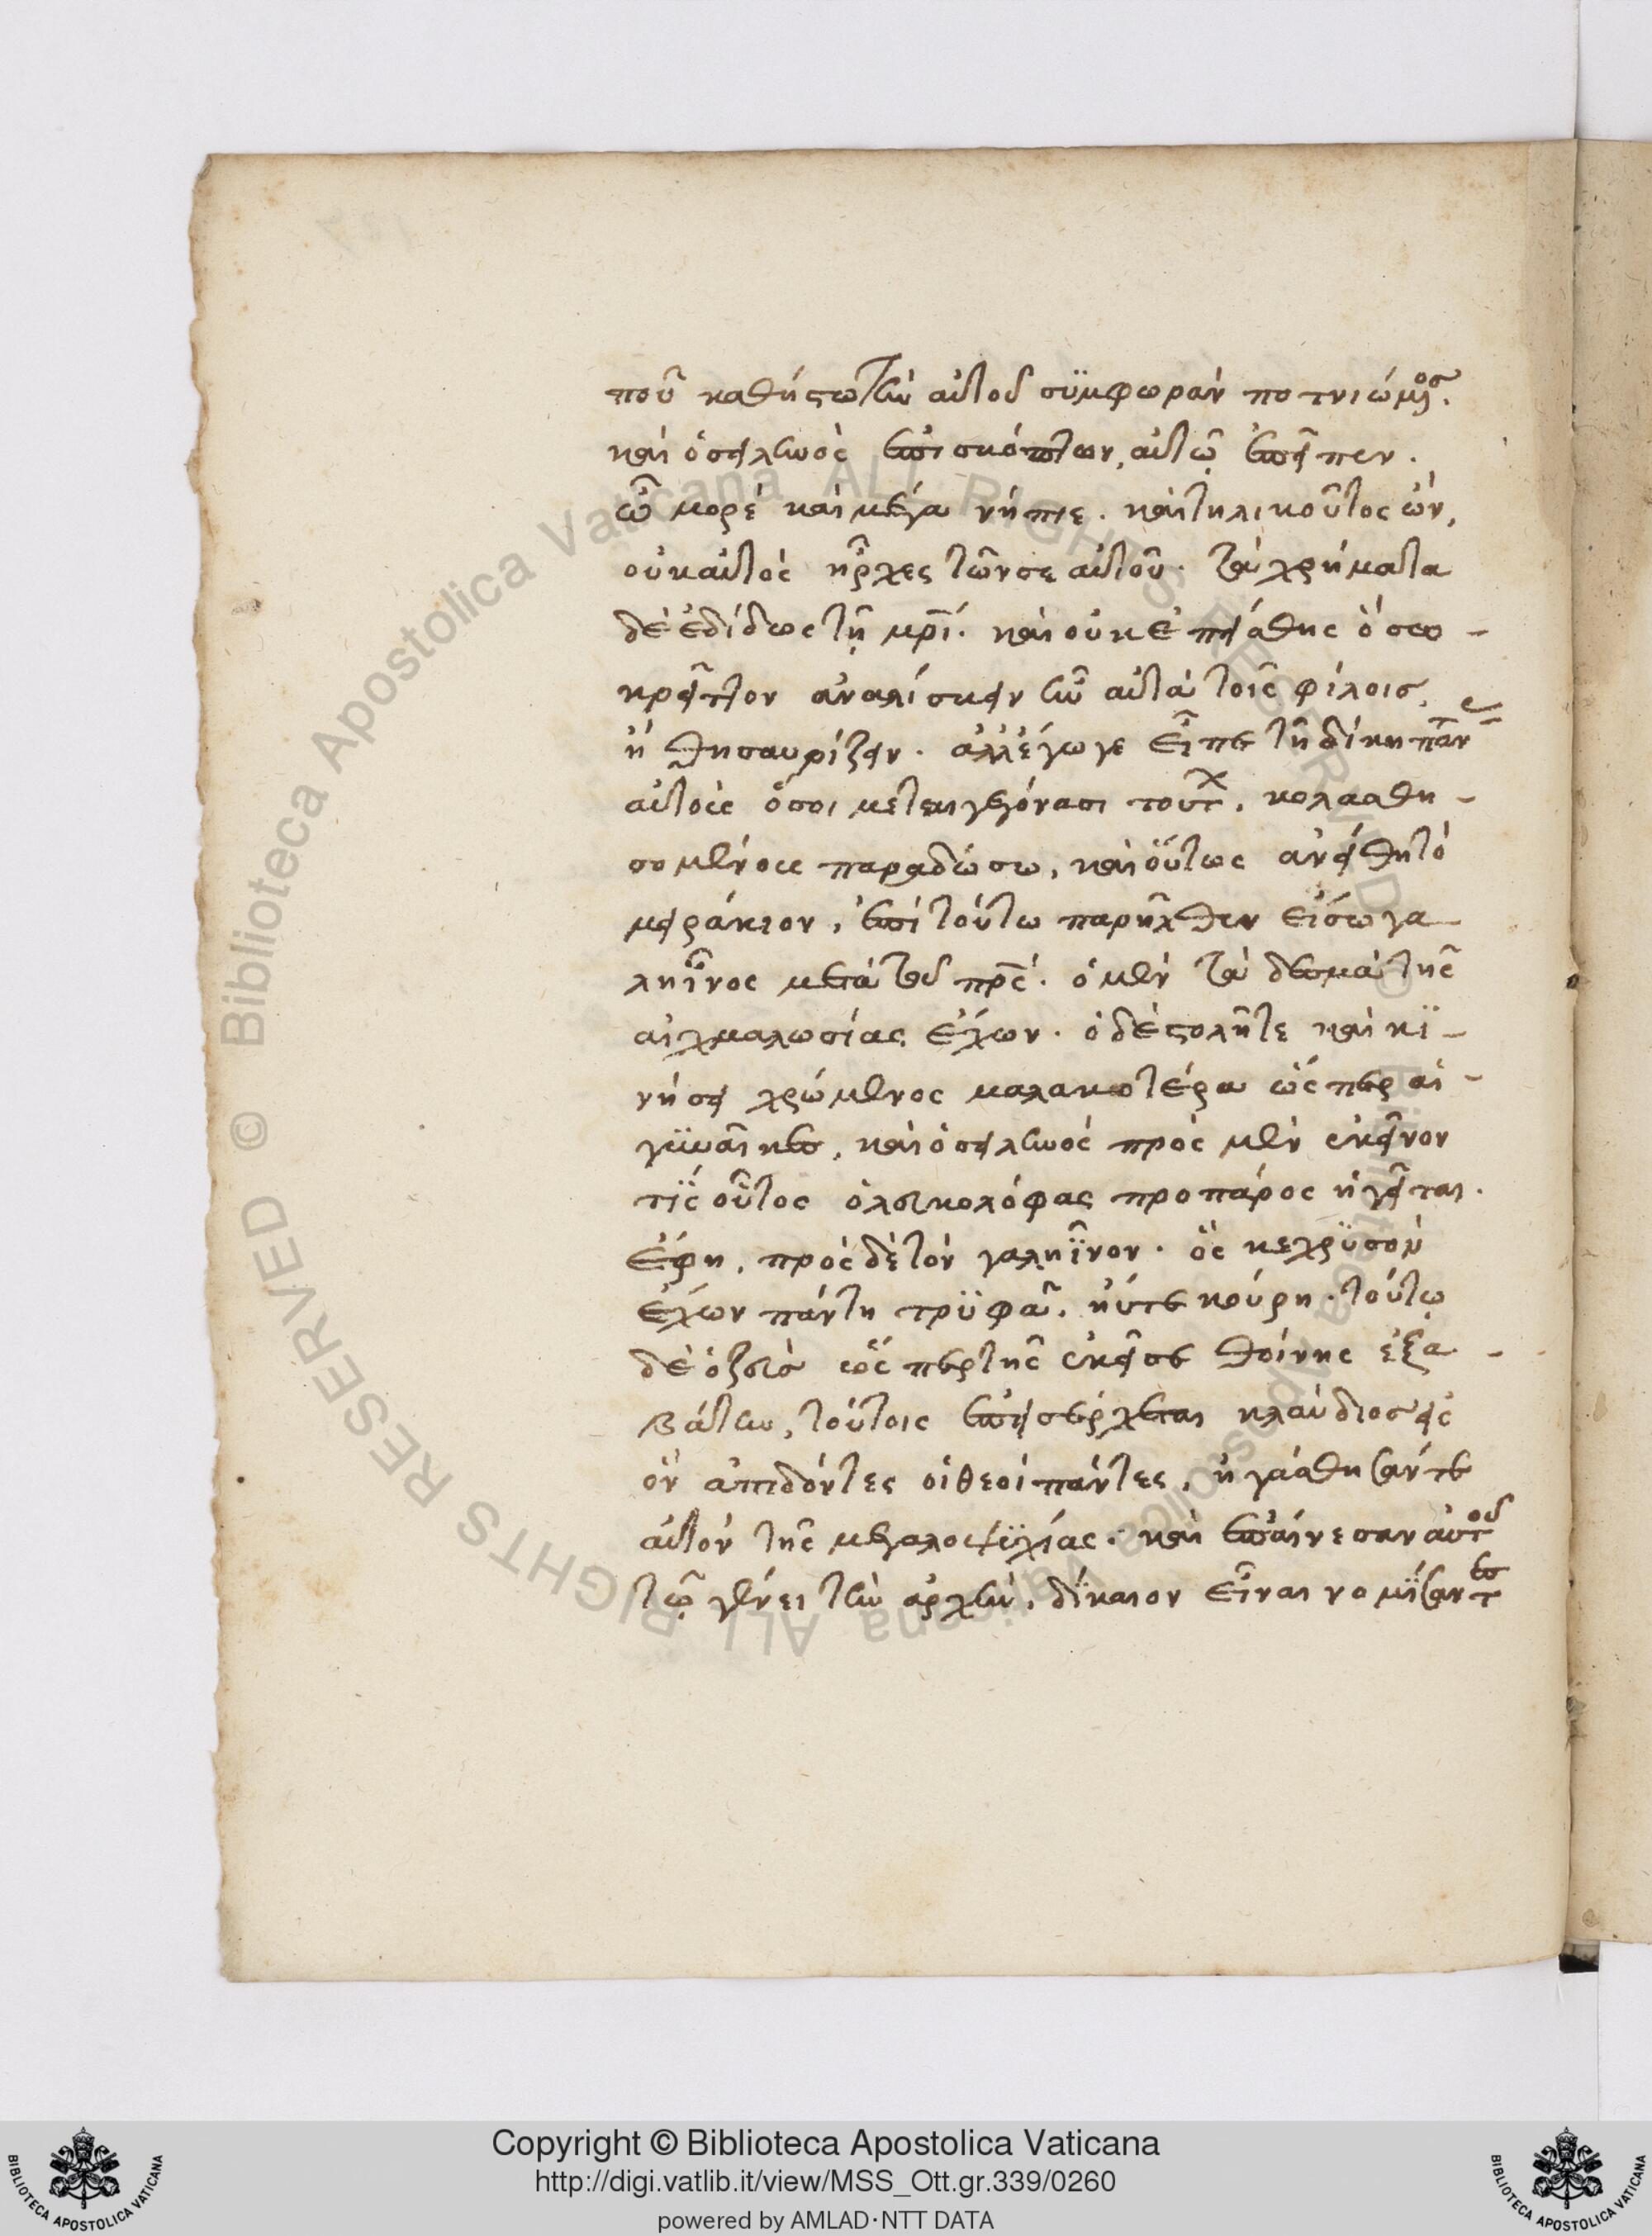 ποῦ καθήστω τὴν αὐτοῦ σϋμφωρὰν ποτνιώμενος.
καὶ ὁ σειληνὸς ἐπισκόπτων, αὐτῷ ἐπεῖπεν.
ὦ μορὲ καὶ μέγα νήπιε. καὶ τηλικοῦτος ὢν,
οὐκ αὐτὸς ἦρχες τῶν σε αὐτοῦ. τὰ χρήματα
δὲ ἐδίδως τῇ μρί. καὶ οὐκ ἐπείσθης ὅσω -
κρεῖττον ἀναλίσκειν ἦν αὐτὰ τοῖς φίλοις,
ἢ θησαυρίζειν. ἀλλ' ἔγωγε εἶπε τῇ δίκῃ πᾶν
αὐτοὺς ὅσοι μεταιγεγόνασι τουτ. κολασθη -
σομένους παραδώσω, καὶ οὕτως ἀνείθη τὸ
μειράκιον, ἐπὶ τούτω παρῆλθεν εἴσω γα
ληῖνος μετὰ τοῦ πρς. ὁ μὲν τὰ δεσμὰ τῆς
αἰχμαλωσίας ἔχων. ὁ δὲ στολῆτε καὶ κϊ -
νήσει χρώμενος μαλακοτέρα ὥς περ αἱ -
γϋναῖκες, καὶ ὁ σειληνὸς πρὸς μὲν ἐκεῖνον
τίς οὗτος ὁ λευκολόφας προπάρος ἡγεῖται.
ἔφη, πρὸς δὲ τὸν γαληῖνον. ὃς κε χρϋσὸν
ἔχων πάντη τρϋφᾶ. ἠύτε κούρη. τούτῳ
δὲ ὁ ζεὺς ὥς περ τῆς ἐκεῖσε θοίνης ἐξα -
βάτην, τούτοις ἐπεισέρχεται κλαύδιος εἰς
ὃν ἀπιδόντες οἱ θεοὶ πάντες, ἠγάσθησάν τε
αὐτὸν τῆς μεγαλοψϋχίας. καὶ ἐπαίνεσαν αὐτοῦ
τῷ γένει τὴν ἀρχὴν, δίκαιον εἶναι νομϊσαντες